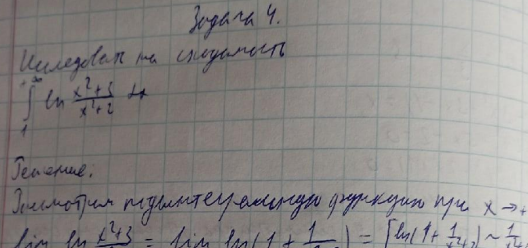 Задача 4.
Исследовать на сходимость
+∞
∫ ln x²+3 / x²+2 dx
1
Решение:
Рассмотрим подынтегральную функцию при x → +
lim ln x²+3 = lim ln(1 + 1 ) = [ln(1 + 1 ) ~ 1